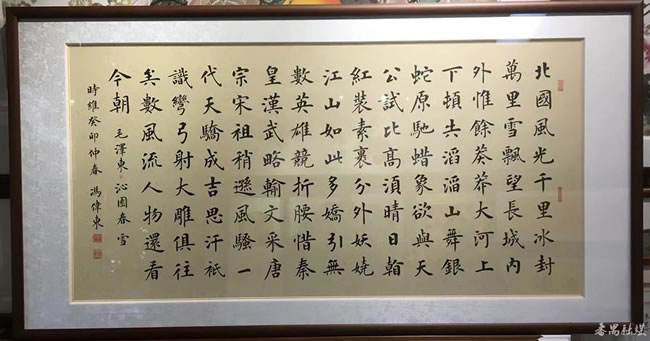 北國風光千里冰封
萬里雪飄望長城内
外惟餘莽莽大河上
下頓失滔滔山舞銀
蛇原馳蜡象欲與天
公試比髙須晴日䀍
紅裝素裹分外妖嬈
江山如此多嬌引無
數英雄競折腰惜秦
皇漢武略輸文采唐
宗宋祖稍遜風騷一
代天驕成吉思汗祗
識彎弓射大雕俱往
矣數風流人物還看
今朝 毛澤東 沁園春 雪
時維癸卯仲春 馮偉東
番禺社媒